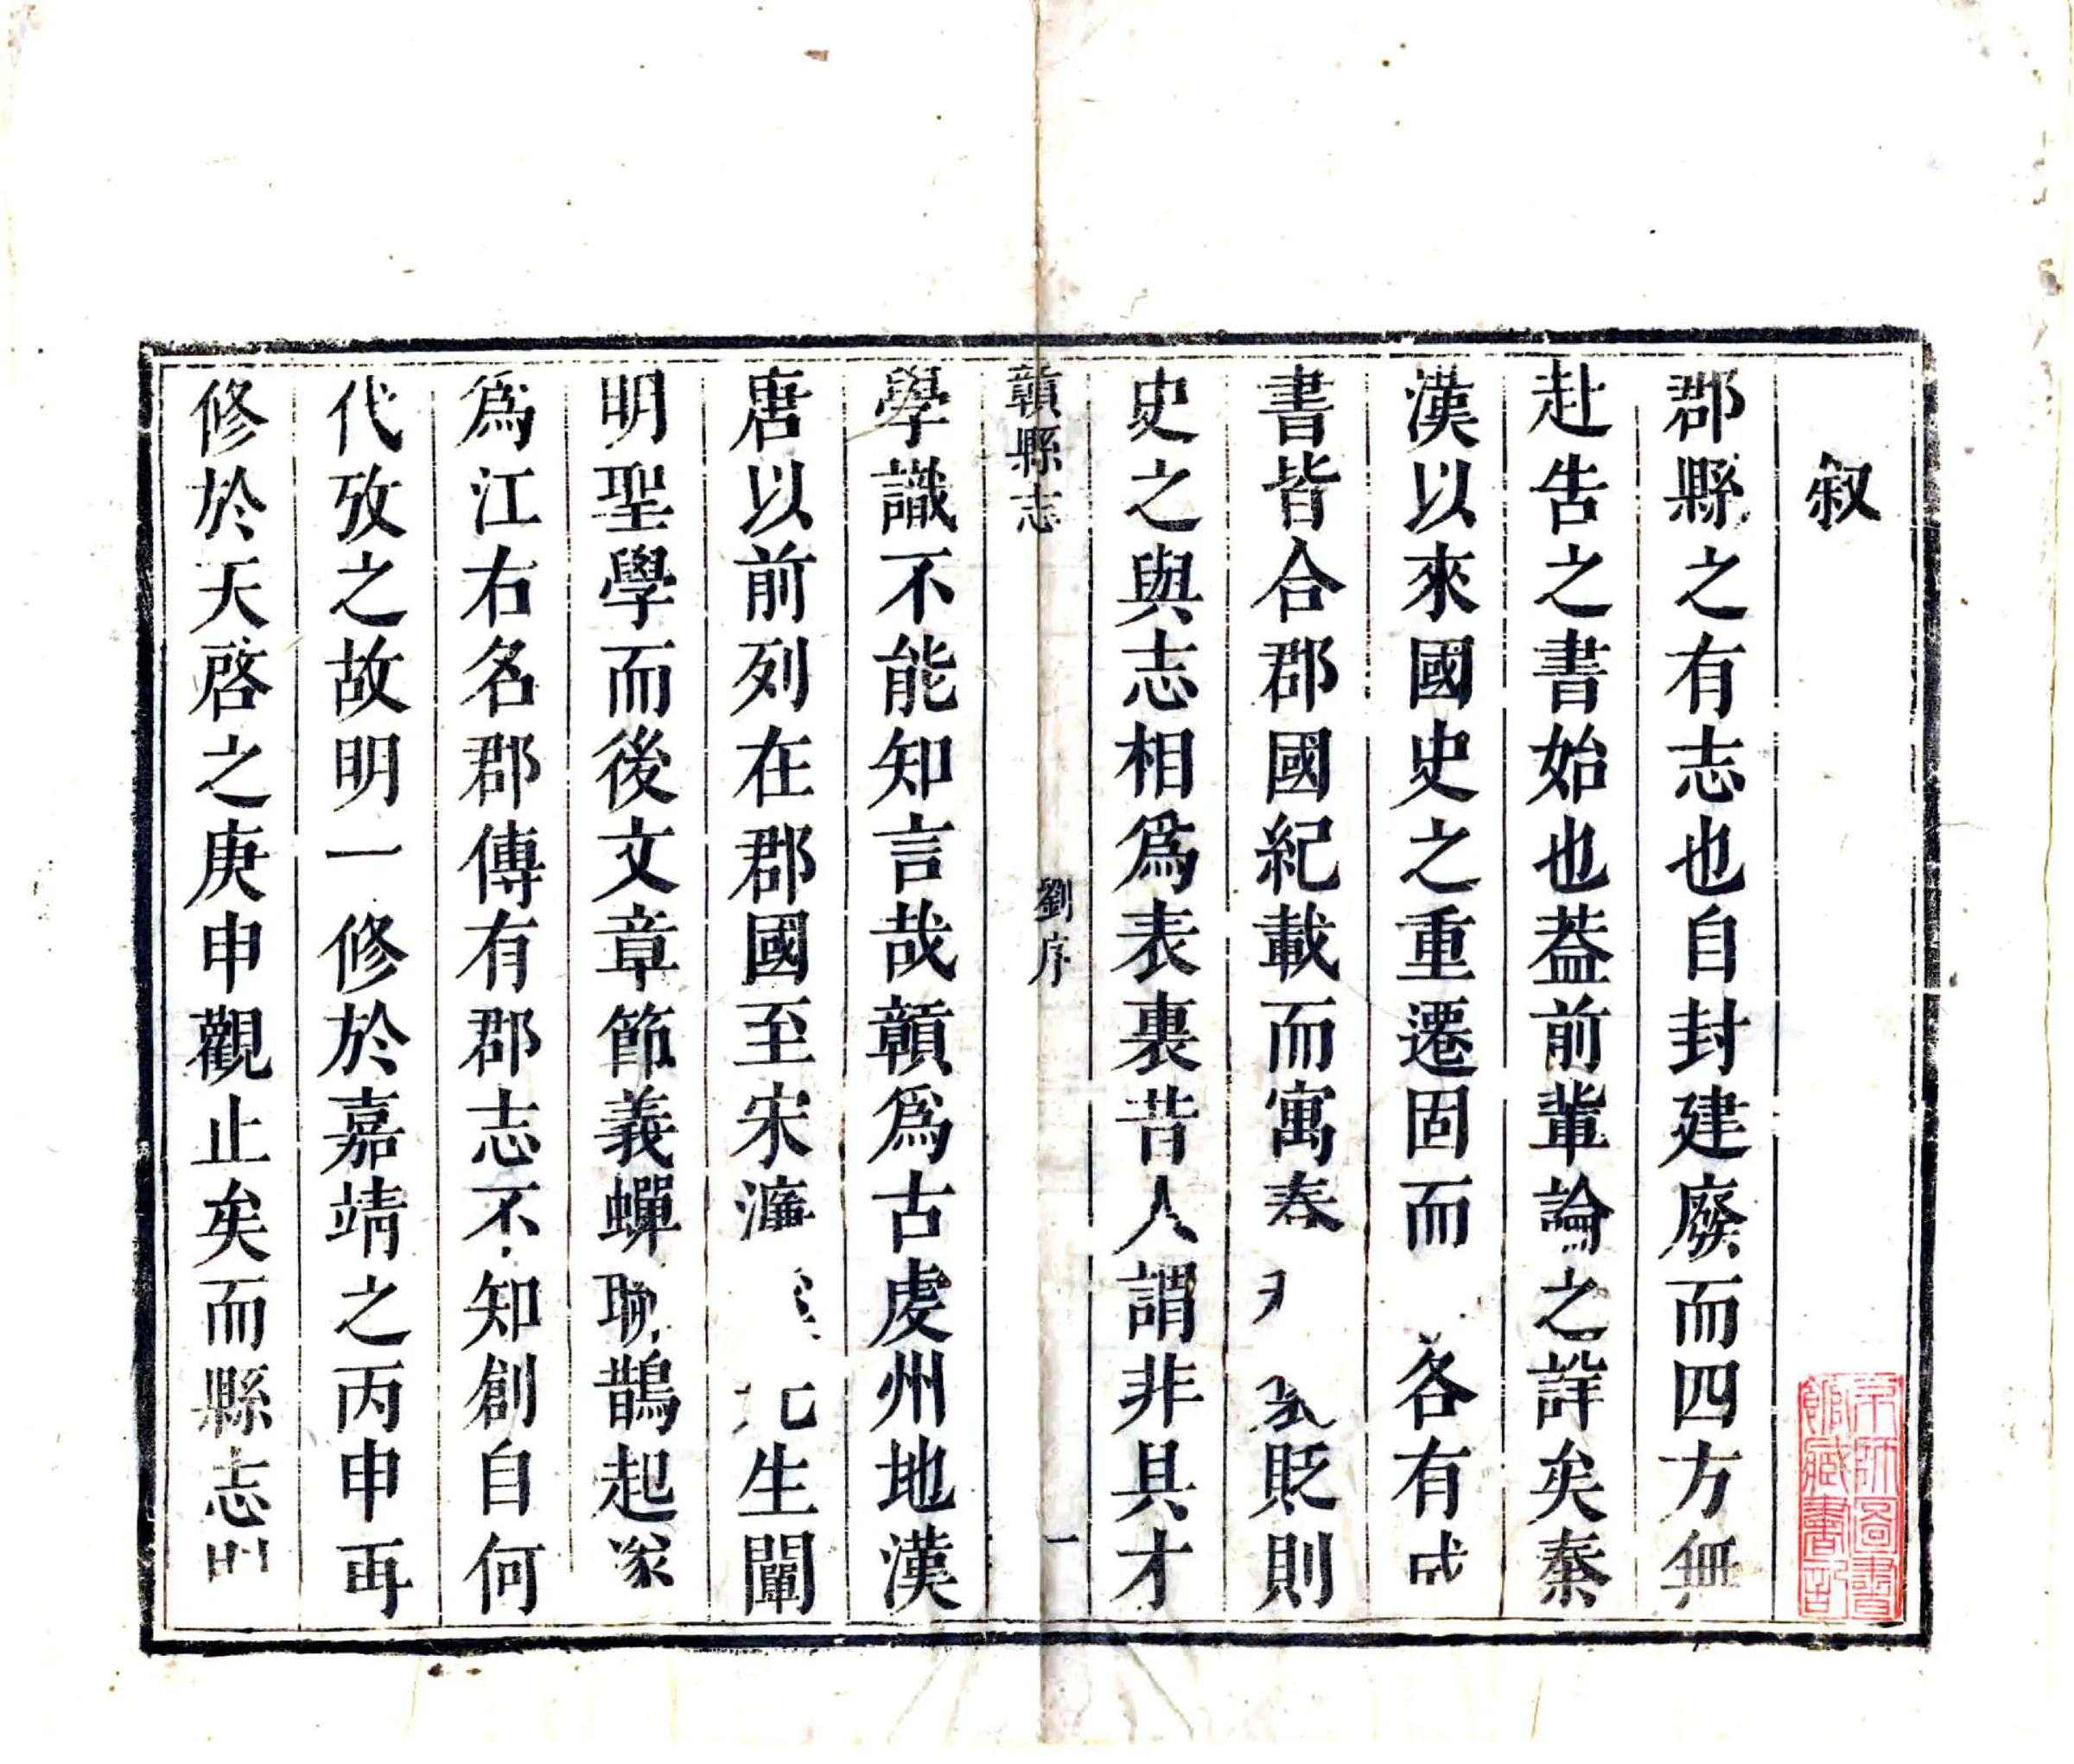 叙
郡縣之有志也自封建廢而四方無
赴告之書始也葢前輩論之詳矣秦
漢以來國史之重遷固而各有成
書皆合郡國紀載而寓春貶則
史之與志相爲表裏昔人謂非具才
贛縣志 劉序 一
學識不能知言哉贛爲古虔州地漢
唐以前列在郡國至宋濂生闡
明聖學而後文章節義蟬聯鵲起遂
爲江右名郡傳有郡志不知創自何
代攷之故明一修於嘉靖之丙申再
修於天啓之庚申觀止矣而縣志
京師圖書館藏書記